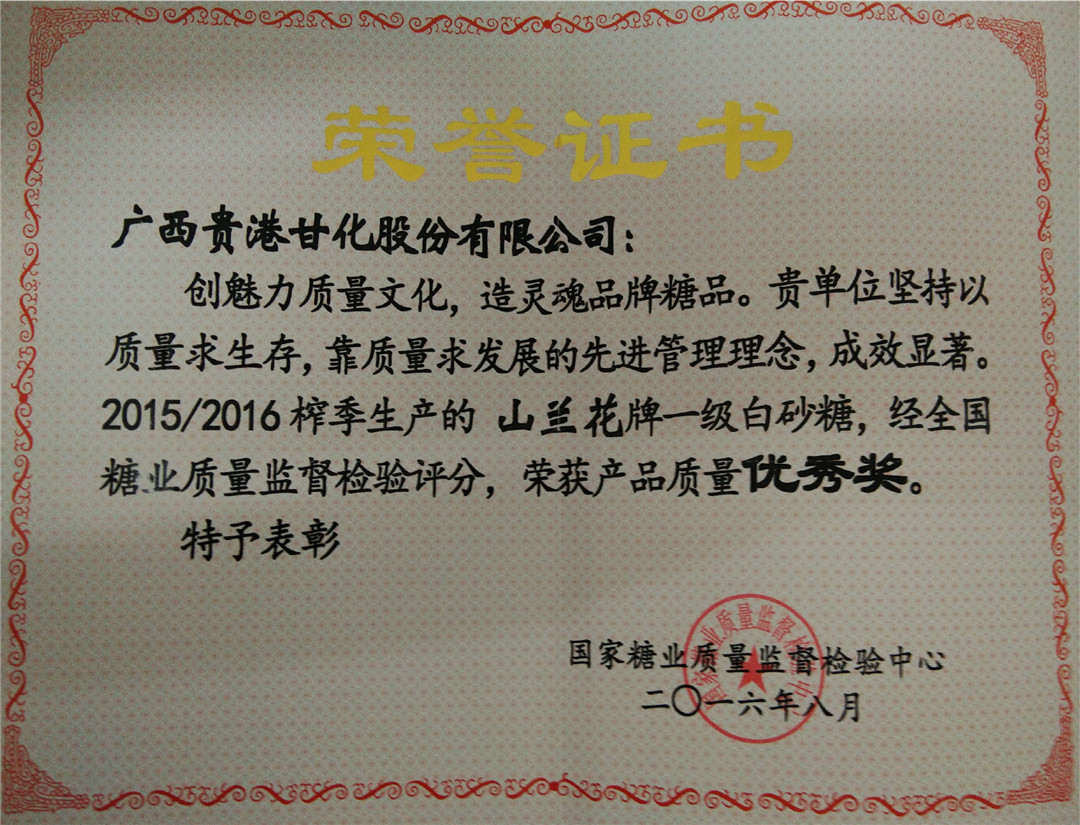 荣誉证书
广西贵港甘化股份有限公司：
创魅力质量文化，造灵魂品牌糖品。贵单位坚持以
质量求生存，靠质量求发展的先进管理理念，成效显著。
2015/2016榨季生产的 山兰花牌一级白砂糖，经全国
糖业质量监督检验评分，荣获产品质量优秀奖。
特予表彰
国家糖业质量监督检验中心
二〇一六年八月
国家糖业质量监督检验中心